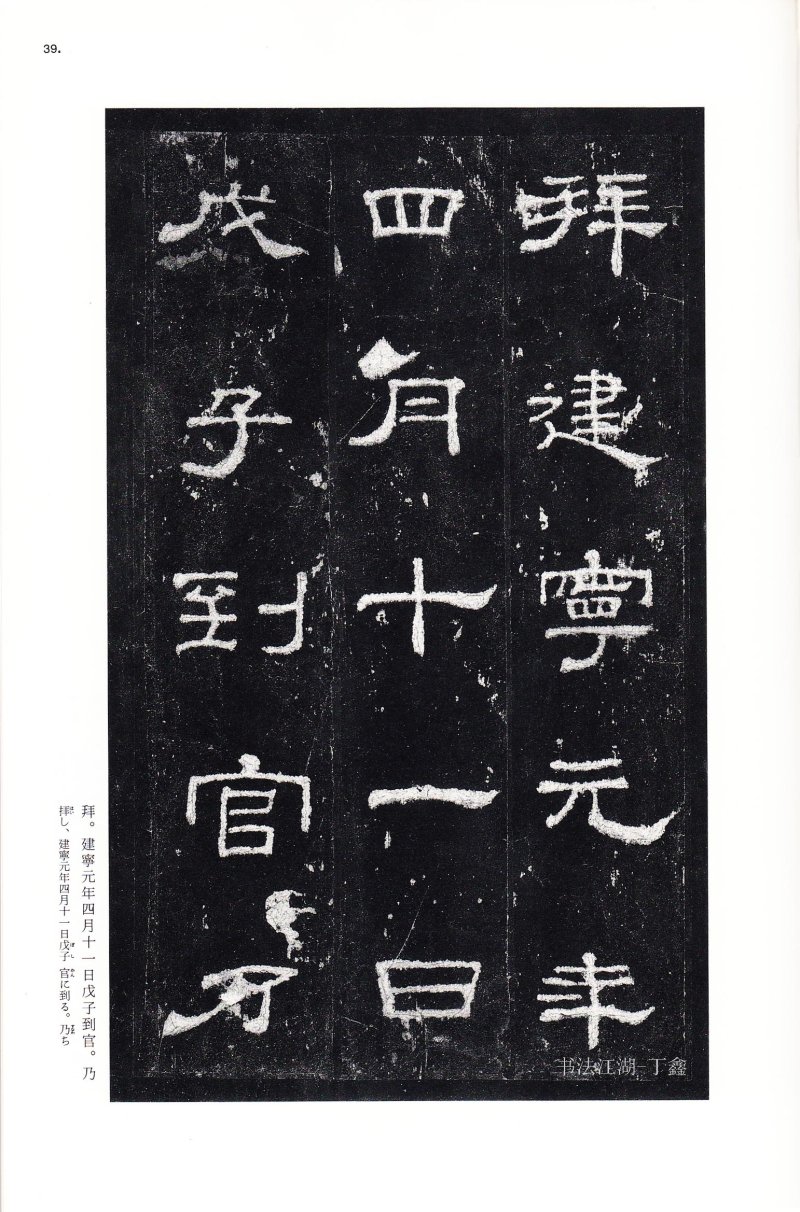 39.
拜建寧元年
四月十一日
戊子到官乃
拜。建寧元年四月十一日戊子到官。乃
拝し、建寧元年四月十一日戊子官に到る。乃ち
书法江湖-丁鑫